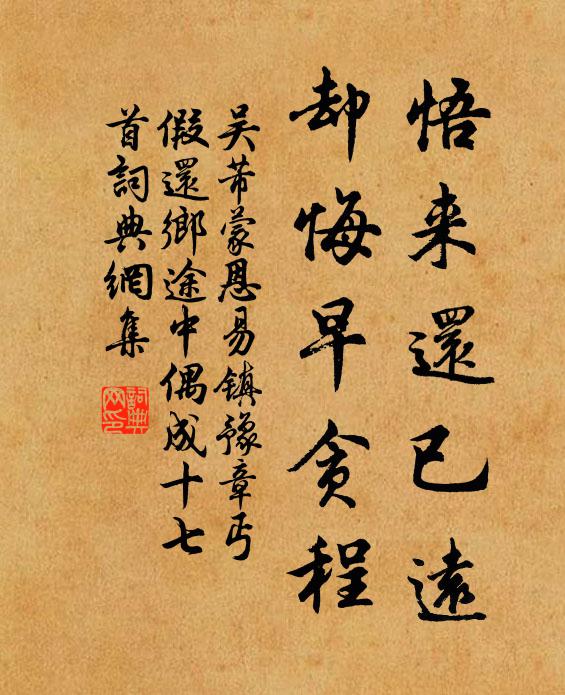 悟来還已遠
却悔早貪程
吴芾蒙恩易鎮豫章丐
假還鄉途中偶成十七
首詞典網集
詞典
网印